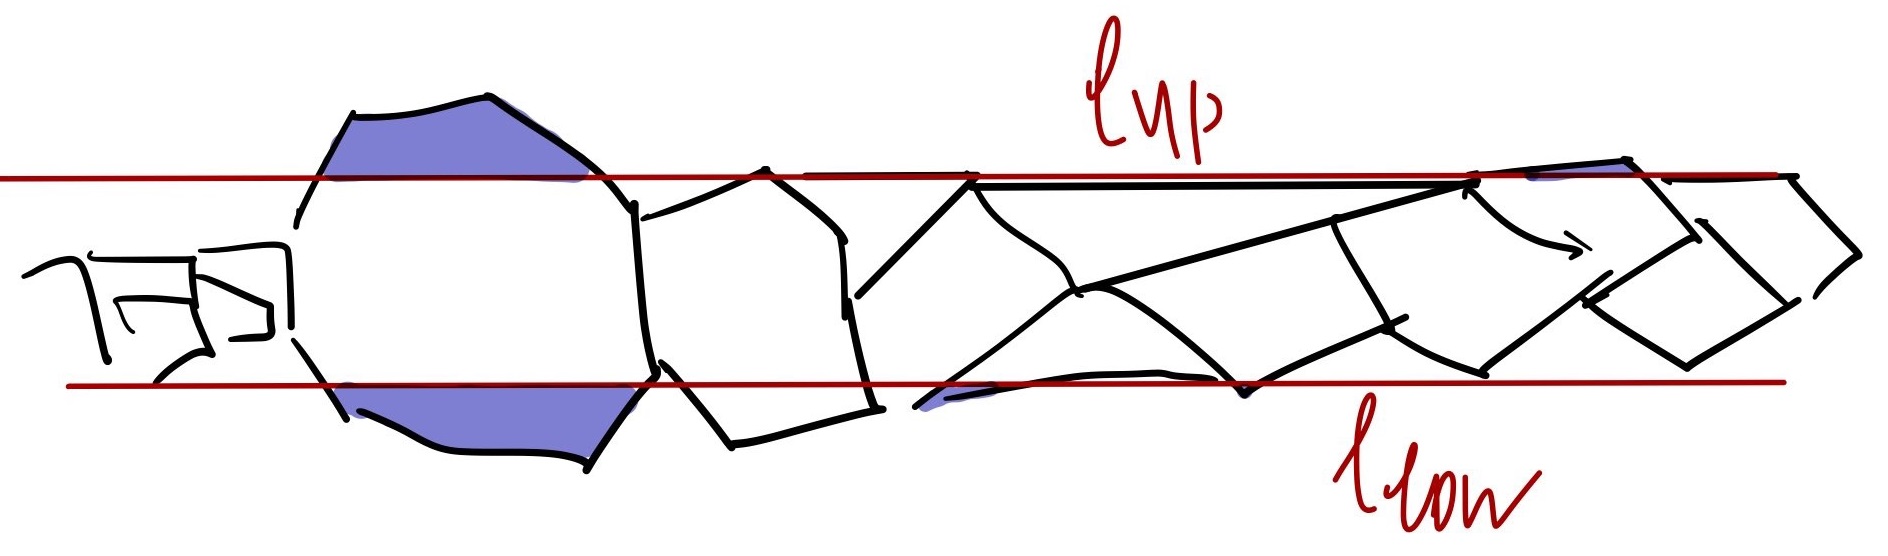 l up
l low